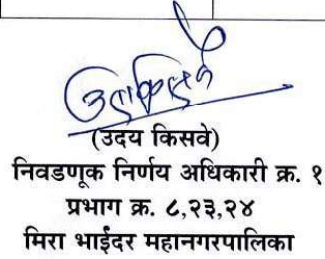 (उदय किसवे)
निवडणूक निर्णय अधिकारी क्र. १
प्रभाग क्र. ८,२३,२४
मिरा भाईंदर महानगरपालिका